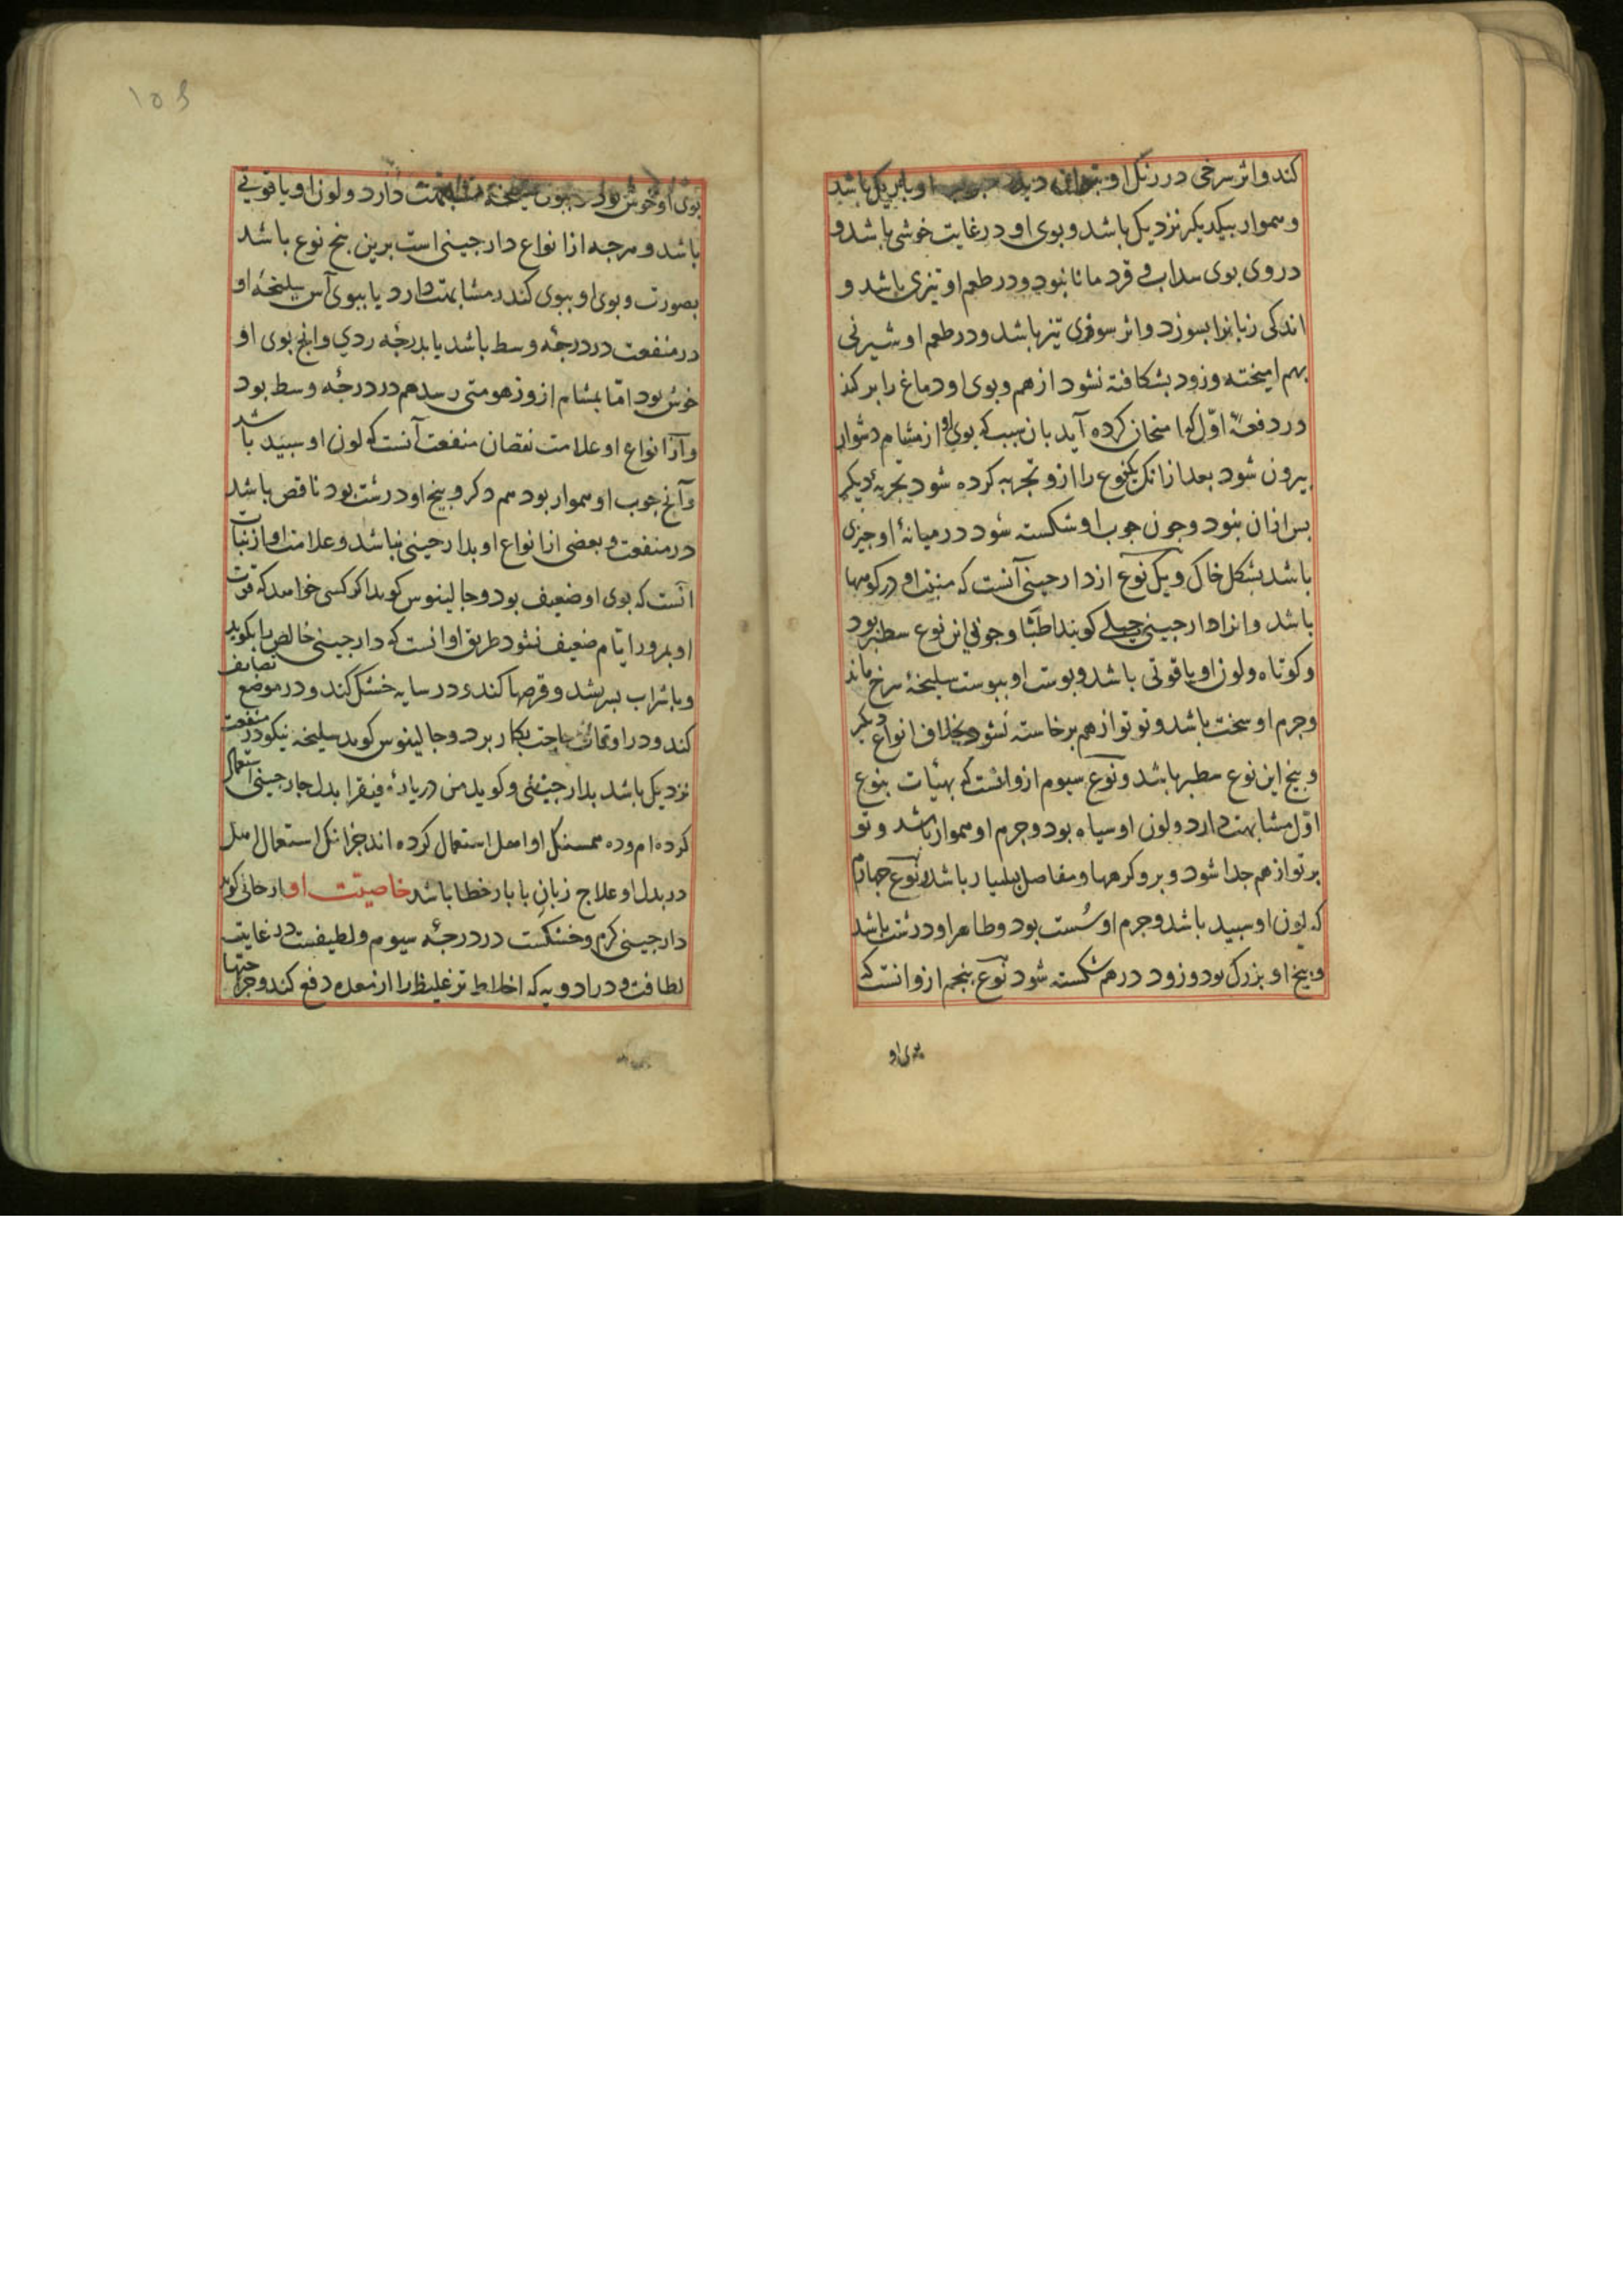 کند و اثر سرخی در رنک او بتوان دید او باریک باشد
و هموار بیکدیکر نزدیک باشد و بوی او در غایت خوشی باشد و
در وی بوی سداب و قردمانا نبود و در طعم او تیزی باشد و
اندکی زبانرا بسوزد و اثر سوزی تیز باشد و در طعم او شیرنی
بهم امیخته و زود بشکافته نشود از هم و بوی او دماغ را بر کند
در دفعهٔ اول کوا متحان کرده آید بان سبب که بوی او از مشام دشوار
بیرون شود بعد ازانک یکنوع را ازو تجربه کرده شود تجربهٔ دیکر
بس ازان نبود و جون جوب او شکسته شود در میانهٔ او جیزی
باشد بشکل خاک و یک نوع از دارجینی آنست که منبت او در کوهها
باشد و انرا دارجینی جبلی کویند اطبا و جوب این نوع سطبر بود
و کوتاه و لون او یاقوتی باشد و بوست او ببوست سلیخهٔ سرخ ماند
و جرم او سخت باشد و تو تو از هم برخاسته نشود بخلاف انواع دیکر
و بیخ این نوع سطبر باشد و نوع سیوم ازو انست که بهیئات بنوع
اول مشابهت دارد و لون او سیاه بود و جرم او هموار باشد و تو
بر تو از هم جدا شود و برو کرهها و مفاصل بسیار باشد و نوع جهارم
که لون او سبید باشد و جرم او سُست بود و ظاهر او درشت باشد
و بیخ او بزرک بود و زود در هم شکسته شود نوع بنجم ازو انست که
بوی او
۱۵۶
بوی او خوش بود سلیخهٔ مشابهت دارد و لون او یاقوتی
باشد و هرجه از انواع دارجینی است برین بنج نوع باشد
بصورت و بوی او ببوی کندر مشابهت دارد یا ببوی آس سلیخهٔ او
در منفعت در درجهٔ وسط باشد یا بدرجهٔ ردی و انج بوی او
خوش بود اما بمشام ازو زهومتی رسد هم در درجهٔ وسط بود
و از انواع او علامت نقصان منفعت آنست که لون او سبید باشد
و آنج جوب او هموار بود هم دکر و بیخ او درشت بود ناقص باشد
در منفعت و بعضی از انواع او بدارجینی نباشد و علامت او از نبات
آنست که بوی او ضعیف بود و جالینوس کوید اکر کسی خواهد که قوت
او بمرور ایام ضعیف نشود طریق او انست که دارجینی خالص را بکوبد
و باشراب بسریشد و قرصها کند و در سایه خشک کند و در موضع نصایف
کند و در اوقات حاجت بکار برد و جالینوس کوید سلیخه نیکو در منفعت
نزدیک باشد بدارجینی و کوید من در یارهٔ فیقرا بدل دارجینی استعمال
کرده ام و ده همسنک او اهل استعمال کرده اند جزانک استعمال اهل
در بدل او علاج زبان بابار خطا باشد خاصیت او ارجانی کوید
دارجینی کرم و خشکست در درجهٔ سیوم و لطیفست در غایت
لطافت و در ادویه که اخلاط تر غلیظ را از معده دفع کند و جراحتها